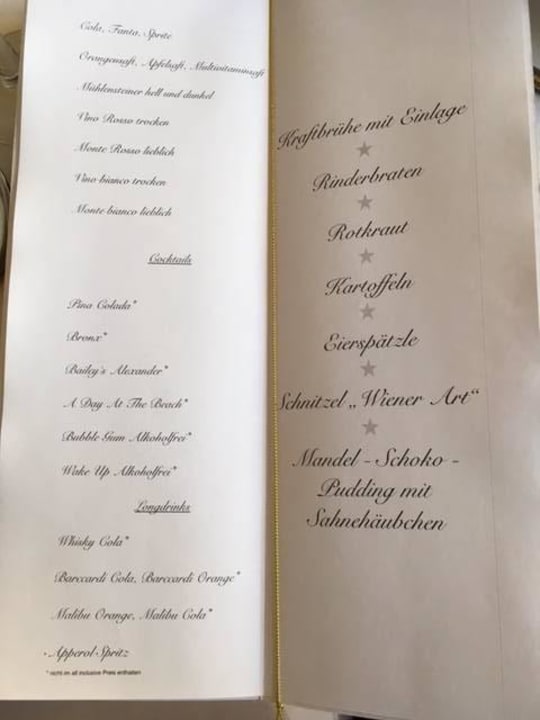 Cola, Fanta, Sprite
Orangensaft, Apfelsaft, Multivitaminsaft
Mühlensteiner hell und dunkel
Vino Rosso trocken
Monte Rosso lieblich
Vino bianco trocken
Monte bianco lieblich
Cocktails
Pina Colada*
Bronx*
Bailey's Alexander*
A Day At The Beach*
Bubble Gum Alkoholfrei*
Wake Up Alkoholfrei*
Longdrinks
Whisky Cola*
Barccardi Cola, Barccardi Orange*
Malibu Orange, Malibu Cola*
Apperol Spritz
* nicht im all inclusive Preis enthalten
Kraftbrühe mit Einlage
Rinderbraten
Rotkraut
Kartoffeln
Eierspätzle
Schnitzel „Wiener Art“
Mandel - Schoko -
Pudding mit
Sahnehäubchen